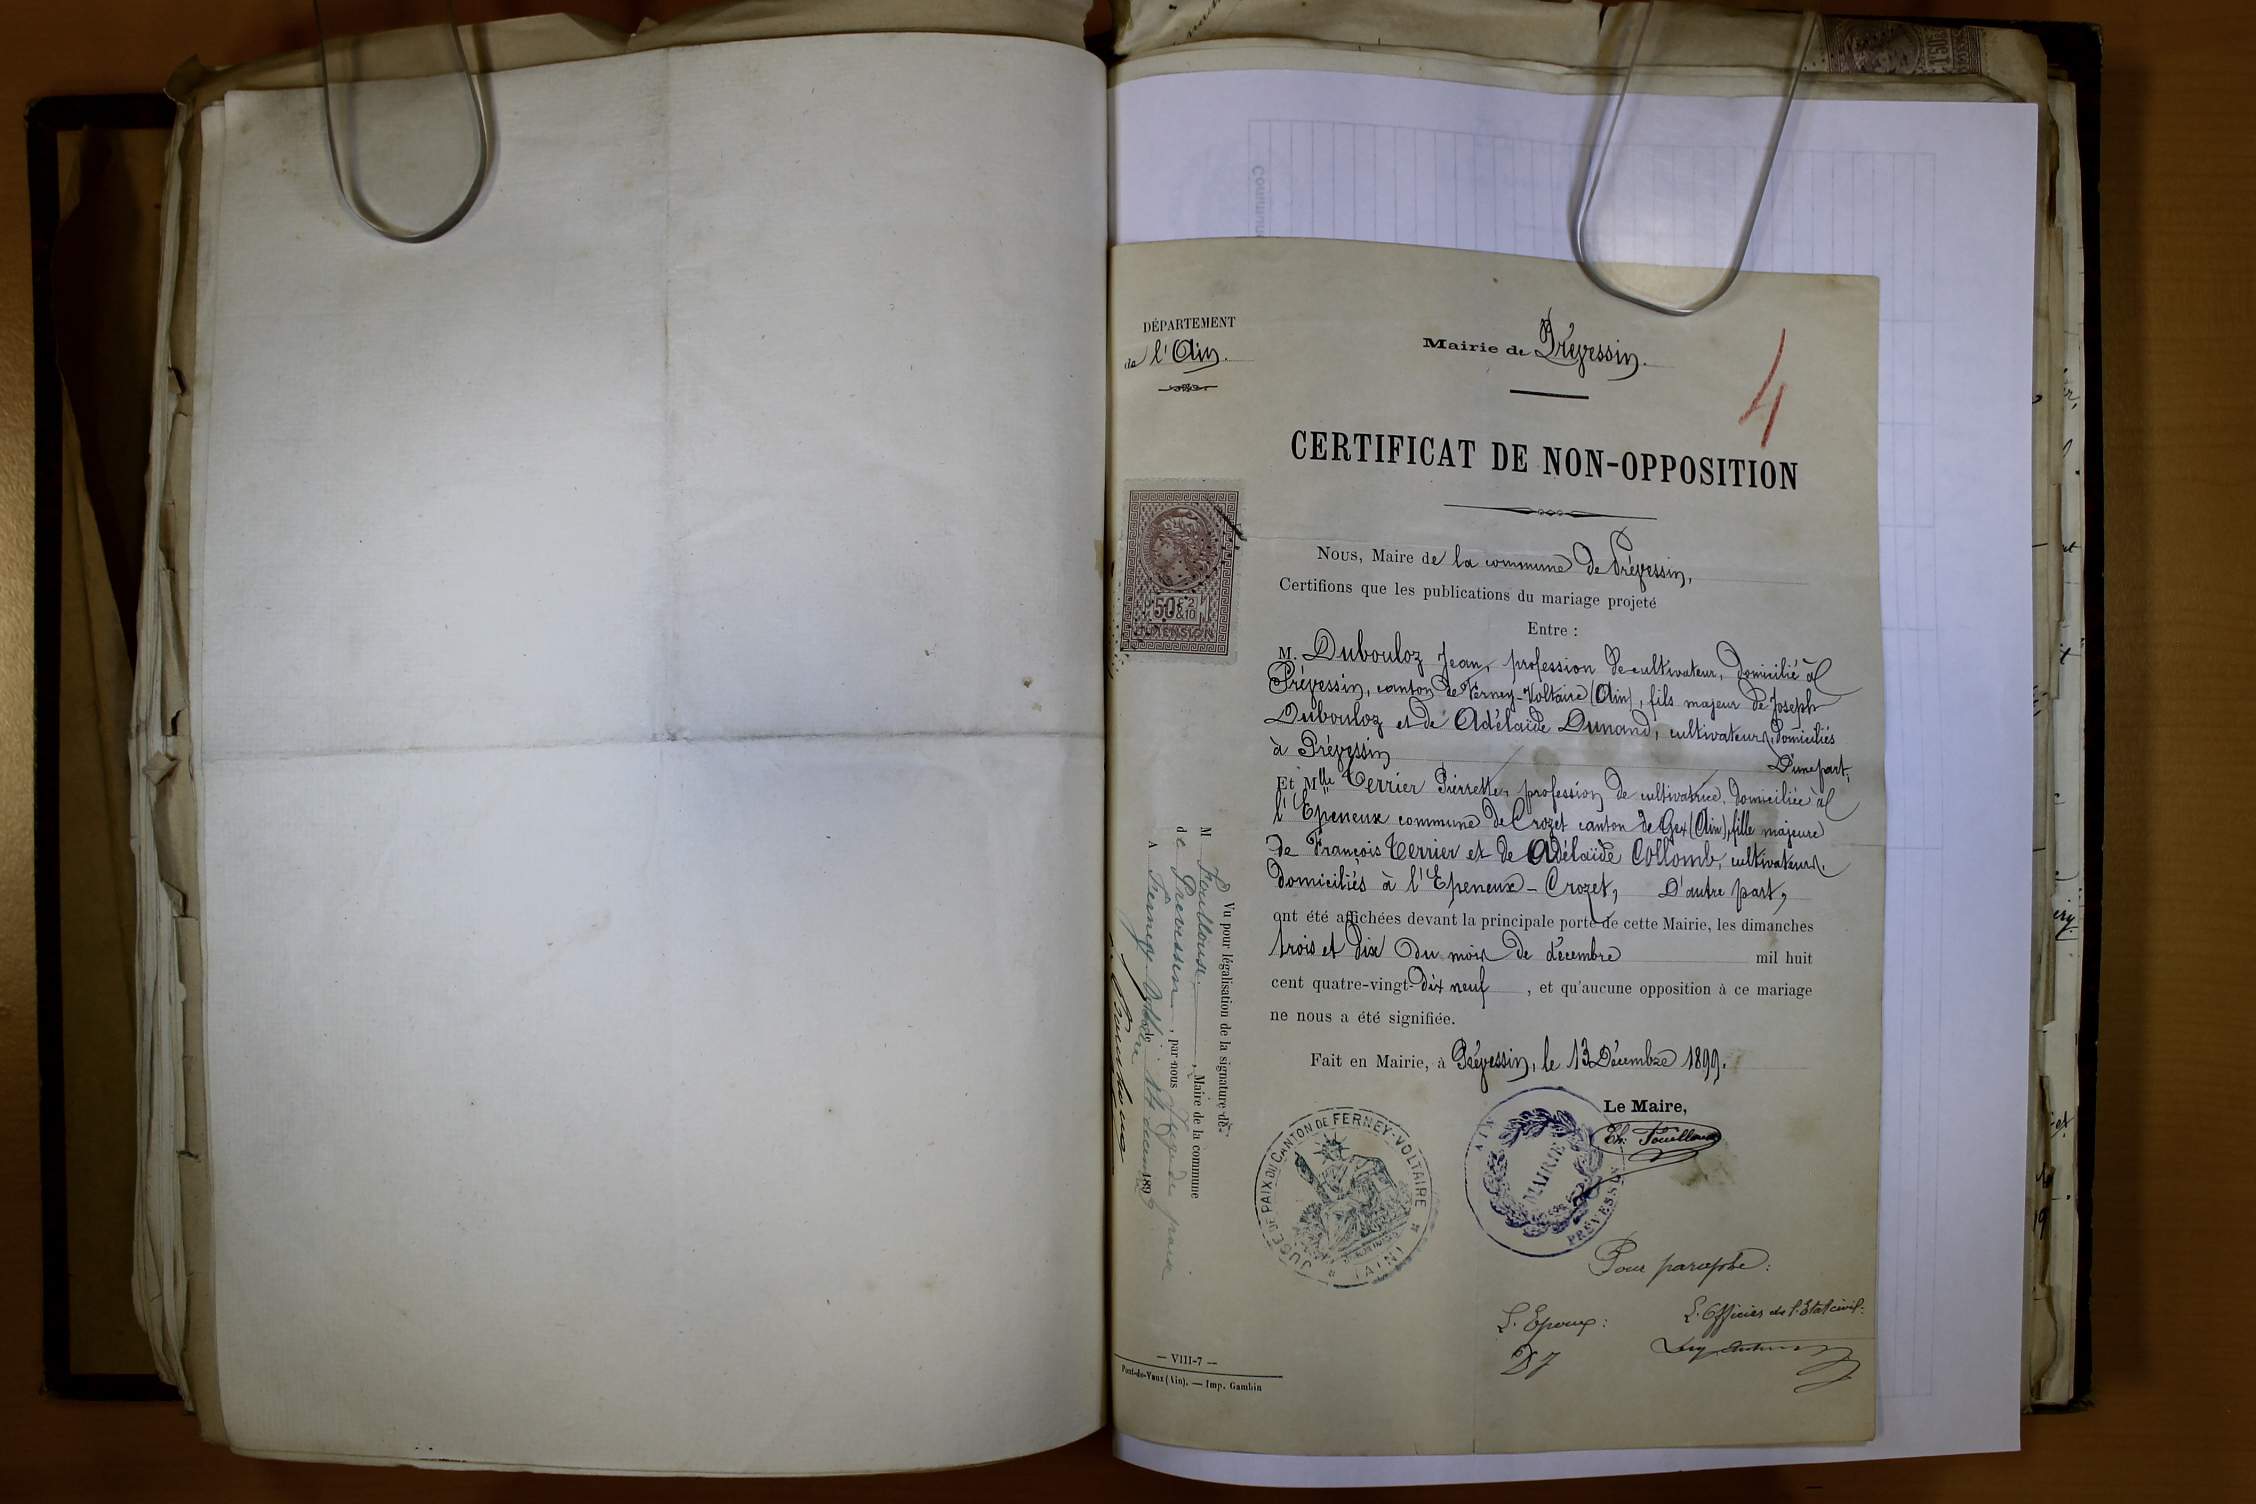 DÉPARTEMENT
de l'Ain.
Mairie de Prévessin.
4
CERTIFICAT DE NON-OPPOSITION
Nous, Maire de la commune de Prévessin,
Certifions que les publications du mariage projeté
Entre :
M. Dubouloz Jean, profession de cultivateur, domicilié à
Prévessin, canton de Ferney-Voltaire (Ain), fils majeur de Joseph
Dubouloz et de Adélaïde Dunand, cultivateurs, domiciliés
à Prévessin D'une part,
Et Mlle Terrier Pierrette, profession de cultivatrice, domiciliée à
l'Epeneux commune de Crozet canton de Gex (Ain), fille majeure
de François Terrier et de Adélaïde Collomb, cultivateurs,
domiciliés à l'Epeneux - Crozet, D'autre part,
ont été affichées devant la principale porte de cette Mairie, les dimanches
trois et dix du mois de décembre mil huit
cent quatre-vingt-dix neuf, et qu'aucune opposition à ce mariage
ne nous a été signifiée.
Fait en Mairie, à Prévessin, le 13 Décembre 1899.
Le Maire,
Pour paraphe :
L'Epoux :
DJ
L'Officier de l'Etat civil :
50 c 2 & 10
DIMENSION
Vu pour légalisation de la signature de
M Fouilloux, Maire de la commune
de Prévessin, par nous Juge de paix
A Ferney-Voltaire le 14 décembre 1899
JUGE DE PAIX DU CANTON DE FERNEY-VOLTAIRE
(AIN)
AIN
MAIRIE
PRÉVESSIN
— VIII-7 —
Pont-de-Vaux (Ain). — Imp. Gambin
Commune
1 50 c